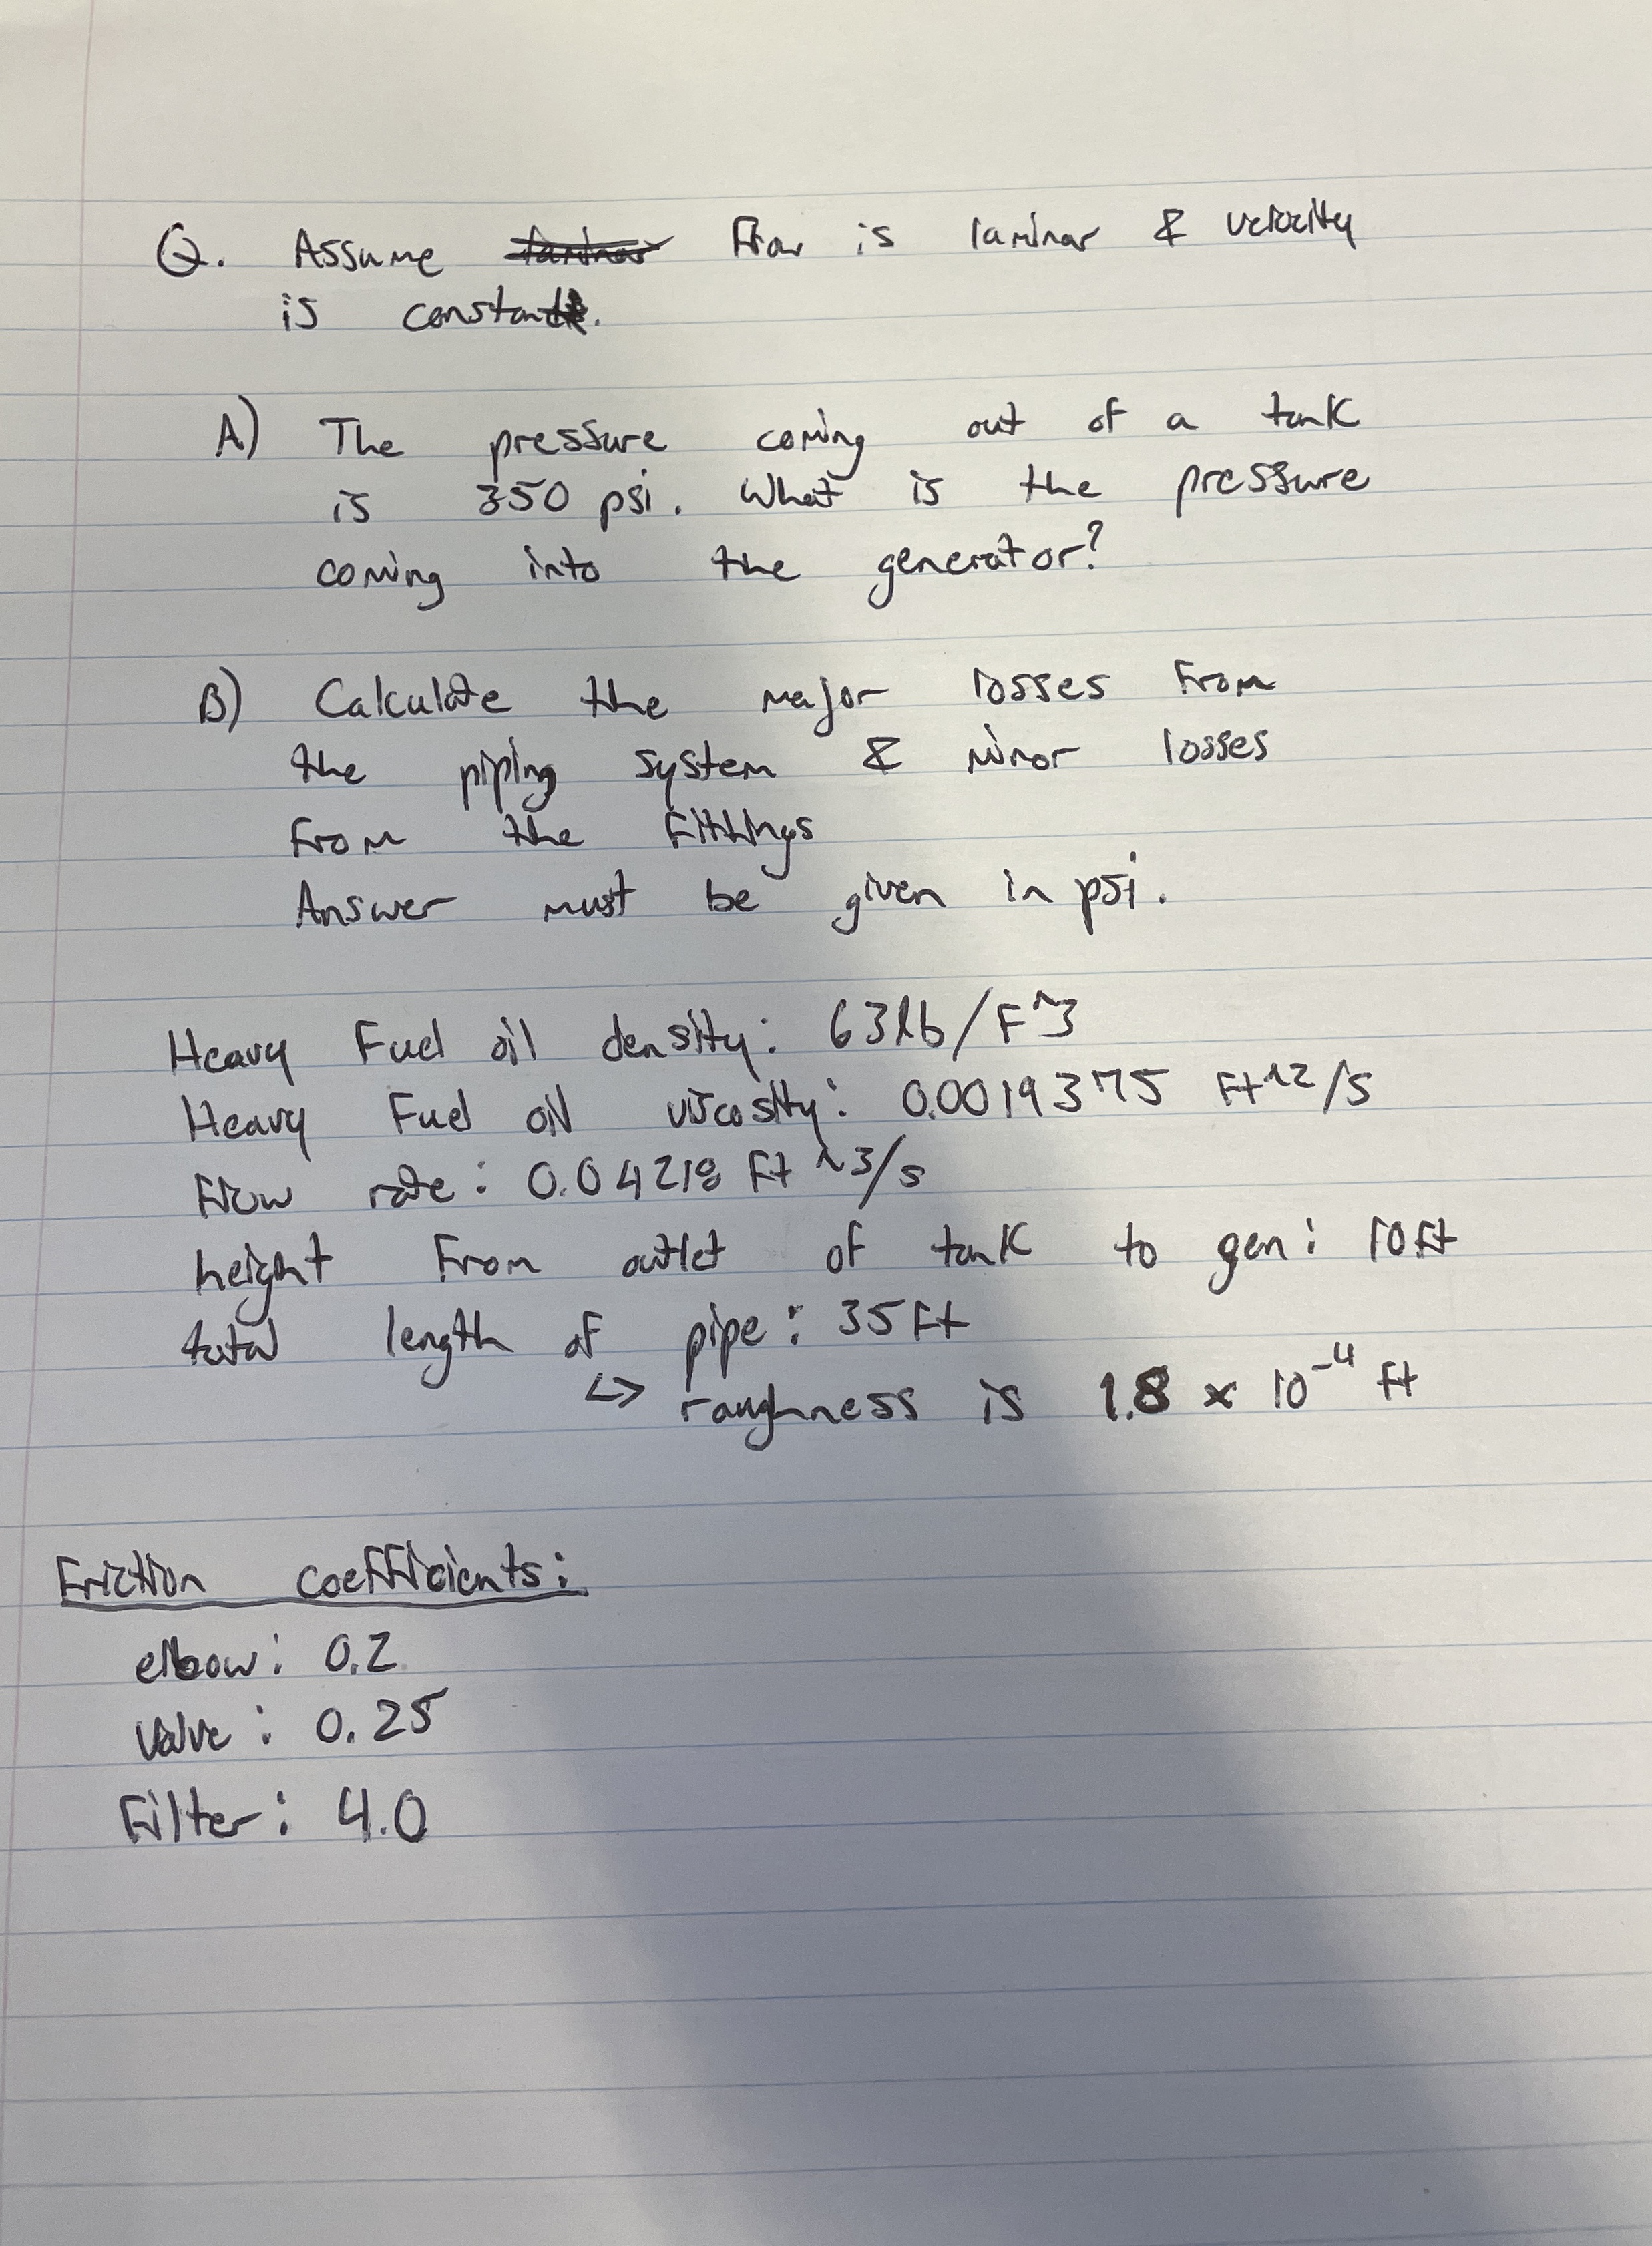 Q. Assume Flow is laminar & velocity
is constant.
A) The pressure coming out of a tank
is 350 psi. What is the pressure
coming into the generator?
B) Calculate the major losses From
the piping system & minor losses
From the Fittings
Answer must be given in psi.
Heavy Fuel oil density: 63lb/F^3
Heavy Fuel oil viscosity: 0.0019375 Ft^2/s
Flow rate: 0.04218 Ft^3/s
height From outlet of tank to gen: 10Ft
total length of pipe: 35Ft
↳> roughness is 1.8 x 10⁻⁴ ft
Friction coefficients:
elbow: 0.2
valve: 0.25
Filter: 4.0